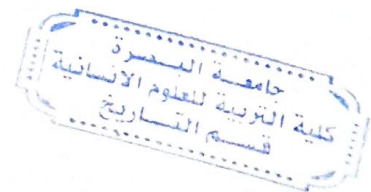 جامعة البصرة
كلية التربية للعلوم الانسانية
قسم التاريخ